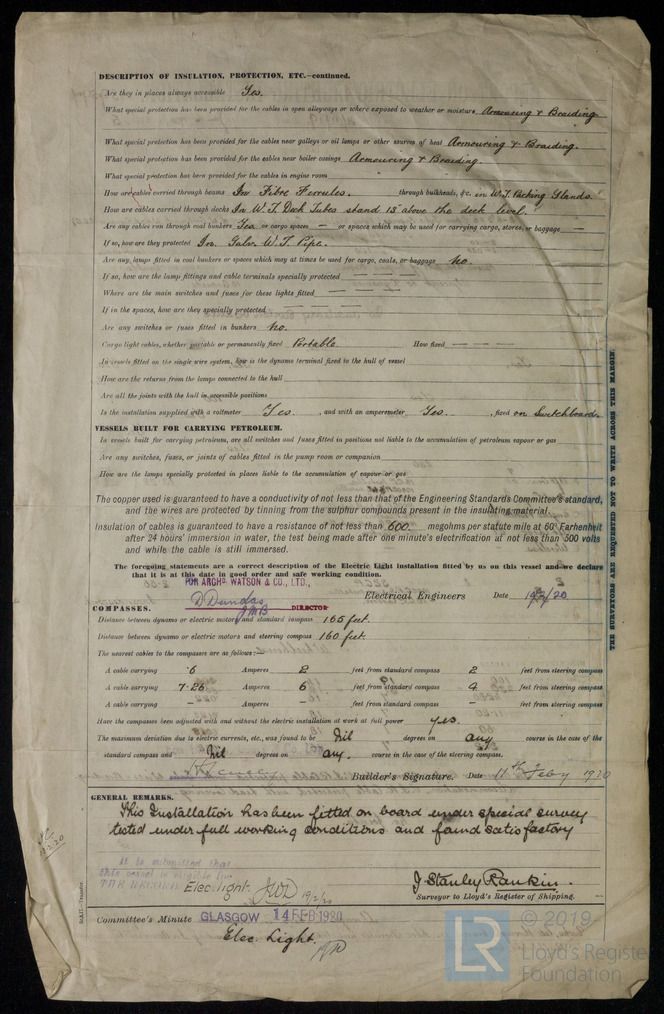 DESCRIPTION OF INSULATION, PROTECTION, ETC.—continued.
Are they in places always accessible Yes.
What special protection has been provided for the cables in open alleyways or where exposed to weather or moisture Armouring & Braiding
What special protection has been provided for the cables near galleys or oil lamps or other sources of heat Armouring & Braiding.
What special protection has been provided for the cables near boiler casings Armouring & Braiding.
What special protection has been provided for the cables in engine room
How are cables carried through beams In Fibre Ferrules. through bulkheads, &c. in W.T. Packing Glands.
How are cables carried through decks In W.T. Deck Tubes stand 18" above the deck level.
Are any cables run through coal bunkers Yes or cargo spaces — or spaces which may be used for carrying cargo, stores, or baggage —
If so, how are they protected In Galvd W.I. Pipe.
Are any lamps fitted in coal bunkers or spaces which may at times be used for cargo, coals, or baggage No.
If so, how are the lamp fittings and cable terminals specially protected — — —
Where are the main switches and fuses for these lights fitted — — —
If in the spaces, how are they specially protected — — —
Are any switches or fuses fitted in bunkers No.
Cargo light cables, whether portable or permanently fixed Portable How fixed — — —
In vessels fitted on the single wire system, how is the dynamo terminal fixed to the hull of vessel
How are the returns from the lamps connected to the hull
Are all the joints with the hull in accessible positions
Is the installation supplied with a voltmeter Yes. , and with an amperemeter Yes. , fixed on Switchboard.
VESSELS BUILT FOR CARRYING PETROLEUM.
In vessels built for carrying petroleum, are all switches and fuses fitted in positions not liable to the accumulation of petroleum vapour or gas
Are any switches, fuses, or joints of cables fitted in the pump room or companion
How are the lamps specially protected in places liable to the accumulation of vapour or gas
The copper used is guaranteed to have a conductivity of not less than that of the Engineering Standards Committee's standard,
and the wires are protected by tinning from the sulphur compounds present in the insulating material.
Insulation of cables is guaranteed to have a resistance of not less than 600. megohms per statute mile at 60° Farhenheit
after 24 hours' immersion in water, the test being made after one minute's electrification at not less than 500 volts
and while the cable is still immersed.
The foregoing statements are a correct description of the Electric Light installation fitted by us on this vessel and we declare
that it is at this date in good order and safe working condition.
FOR ARCHD. WATSON & CO., LTD.,
D Dundas Electrical Engineers Date
JMB DIRECTOR
COMPASSES.
Distance between dynamo or electric motors and standard compass 165 feet.
Distance between dynamo or electric motors and steering compass 160 feet.
The nearest cables to the compasses are as follows:—
A cable carrying .6 Amperes 2 feet from standard compass 2 feet from steering compass
A cable carrying 7.26 Amperes 6 feet from standard compass 4 feet from steering compass
A cable carrying — Amperes — feet from standard compass — feet from steering compass
Have the compasses been adjusted with and without the electric installation at work at full power yes.
The maximum deviation due to electric currents, etc., was found to be Nil degrees on any course in the case of the
standard compass and Nil degrees on any. course in the case of the steering compass.
Builder's Signature. Date 11th Feby 1920
GENERAL REMARKS.
This Installation has been fitted on board under special survey
tested under full working conditions and found satisfactory
It is submitted that
this vessel is eligible for
THE RECORD Elec. light. JWD 19/2/20
J Stanley Rankin.
Surveyor to Lloyd's Register of Shipping.
Committee's Minute GLASGOW 14 FEB 1920
Elec. Light.
THE SURVEYORS ARE REQUESTED NOT TO WRITE ACROSS THIS MARGIN.
© 2019
LR
Lloyd's Register
Foundation